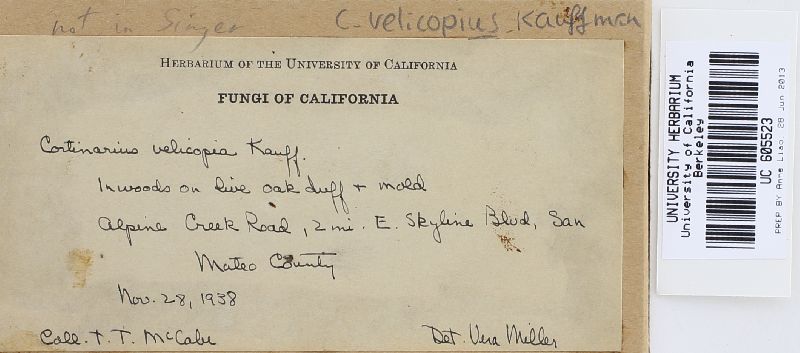 not in Singer
C. velicopius Kauffman
HERBARIUM OF THE UNIVERSITY OF CALIFORNIA
FUNGI OF CALIFORNIA
Cortinarius velicopia Kauff.
In woods on live oak duff + mold
Alpine Creek Road, 2 mi. E. Skyline Blvd, San
Mateo County
Nov. 28, 1938
Coll. T. T. McCabe
Det. Vera Miller
UNIVERSITY HERBARIUM
University of California
Berkeley
UC 605523
PREP. BY Anna Liao, 28 Jun 2013